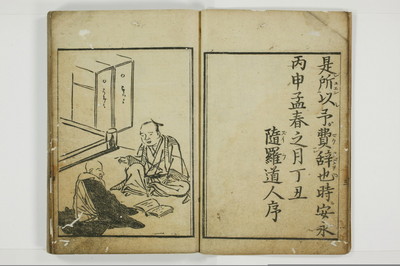 是所以予費辞也時安永
丙申孟春之月丁丑
隨羅道人序